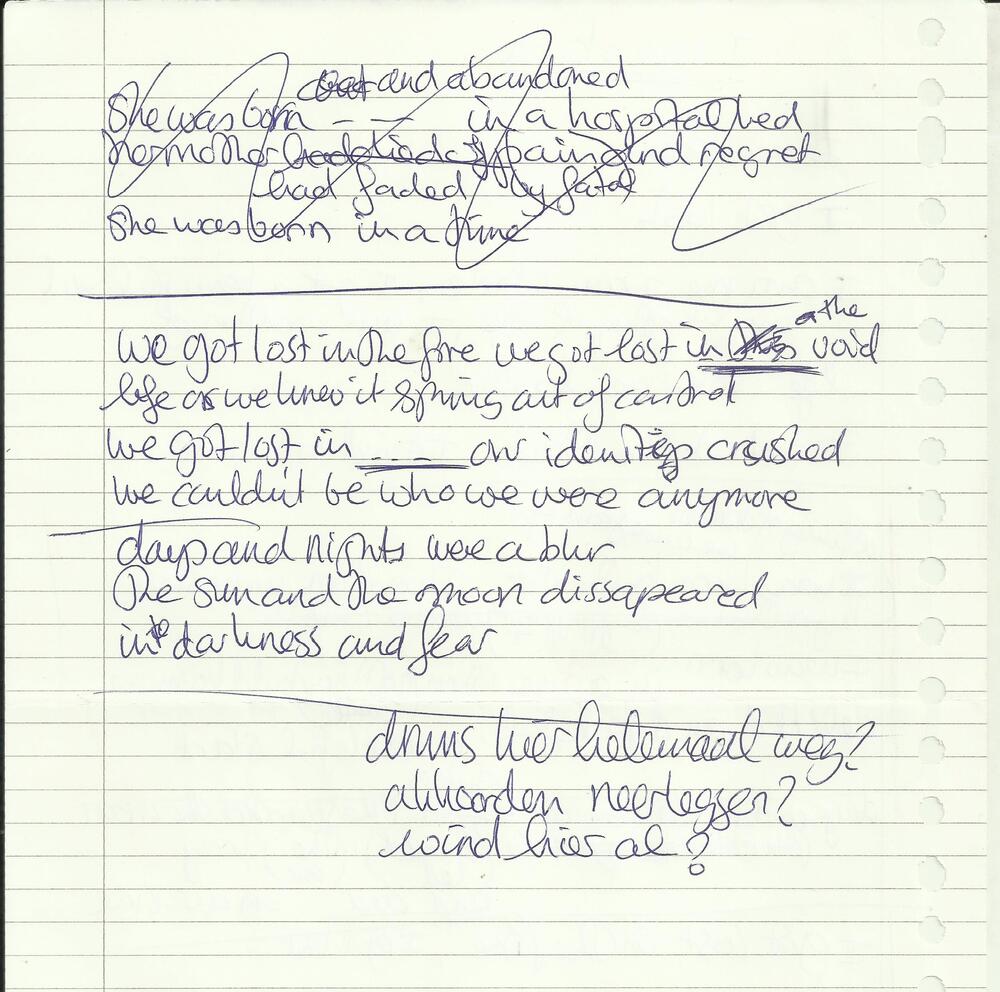 and abandoned
She was born _ _ _ in a hospital bed
her mother had died of pain and regret
had faded by fatal
She was born in a time
a the
we got lost in the fire we got lost in void
life as we knew it spining out of control
we got lost in _ _ _ our identity crushed
we couldn't be who we were anymore
days and nights were a blur
the sun and the moon dissapeared
into darkness and fear
drums hier helemaal weg?
akkoorden neerleggen?
wind hier al?